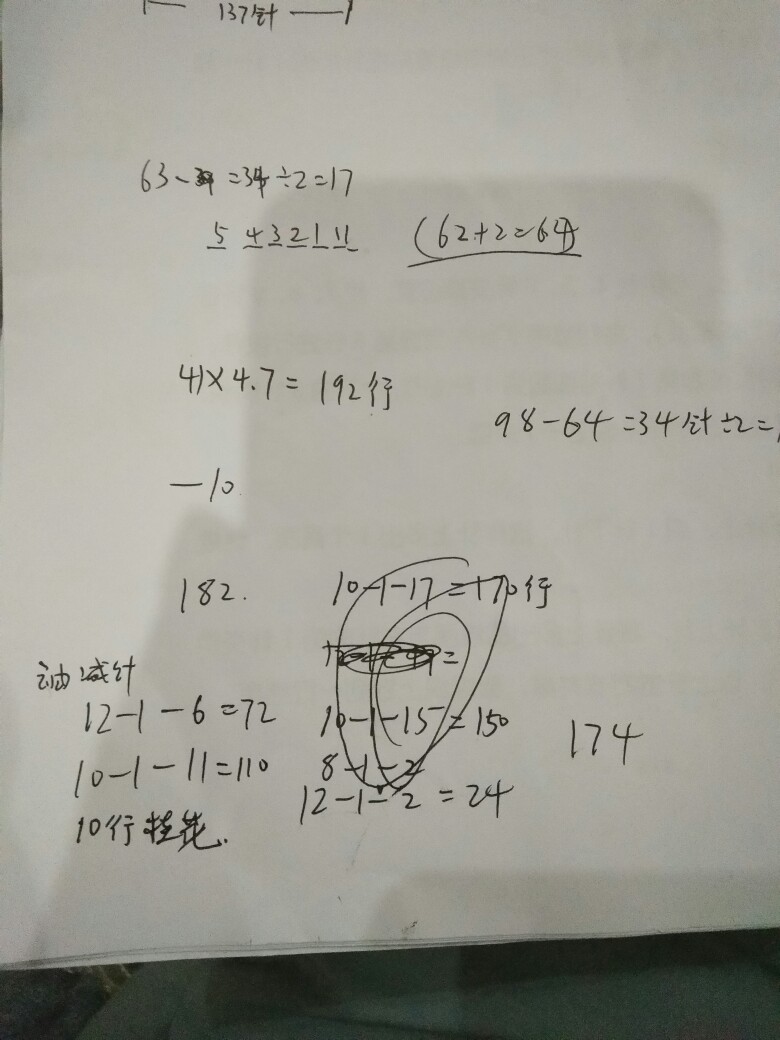 137针
63- =34÷2=17
5 4 3 2 1 11
(62+2=64)
41×4.7=192行
98-64=34针÷2=
-10
182.
10-1-17=170行
油减针
12-1-6=72
10-1-15=150
174
10-1-11=110
8-1-2
12-1-2=24
10行桂花.